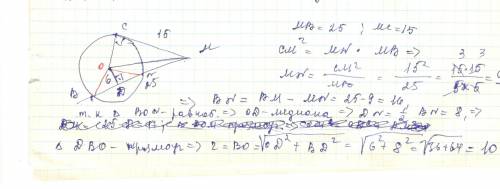 C
15
M
O
6
D
N
25
B
MB = 25 ; MC = 15
CM² = MN · MB =>
MN = CM² / MB = 15² / 25 = 15·15 / 5×5
3 3
=> BN = BM - MN = 25 - 9 = 16,
т.к. Δ BON - равноб => OD - медиана => DN = ½ BN = 8, =>
Δ DBO - прямоуг => r = BO = √OD² + BD² = √6² + 8² = √36+64 = 10